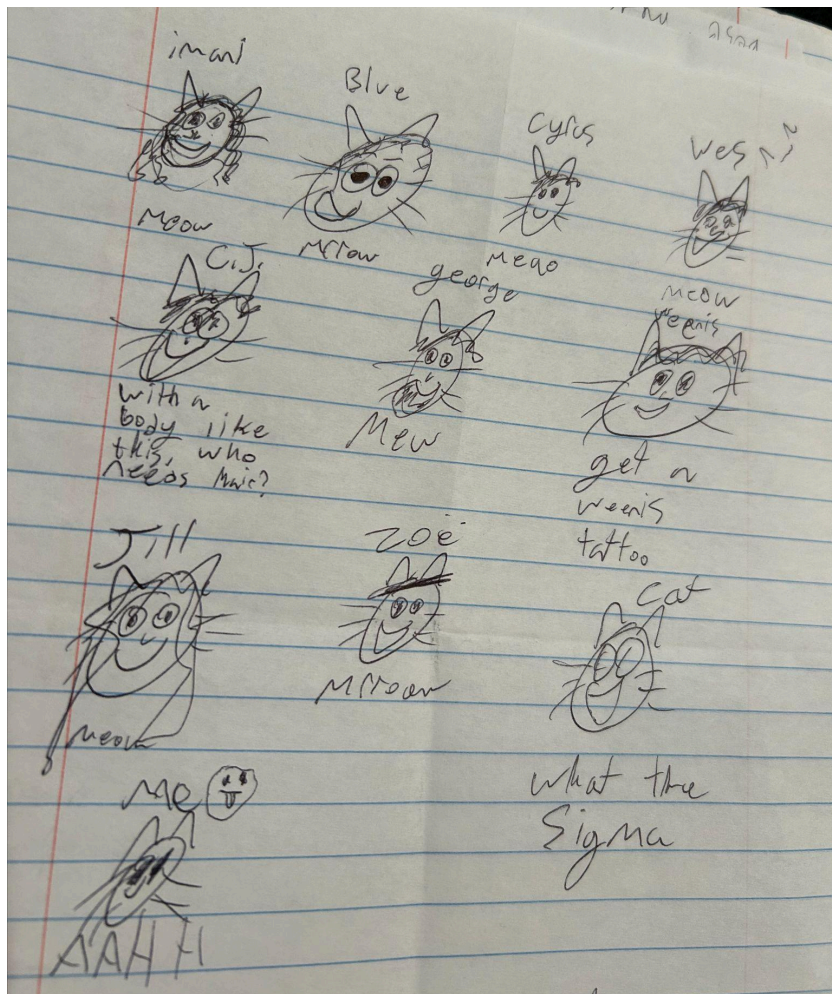 imani
Blue
Cyrus
Wes
Meow
Mrrow
Meao
meow
C.J.
george
weenis
with a
body like
this, who
needs
Mew
get a
weenis
tattoo
Jill
zoë
cat
Meow
Mrreow
what the
Sigma
Me
AAHH